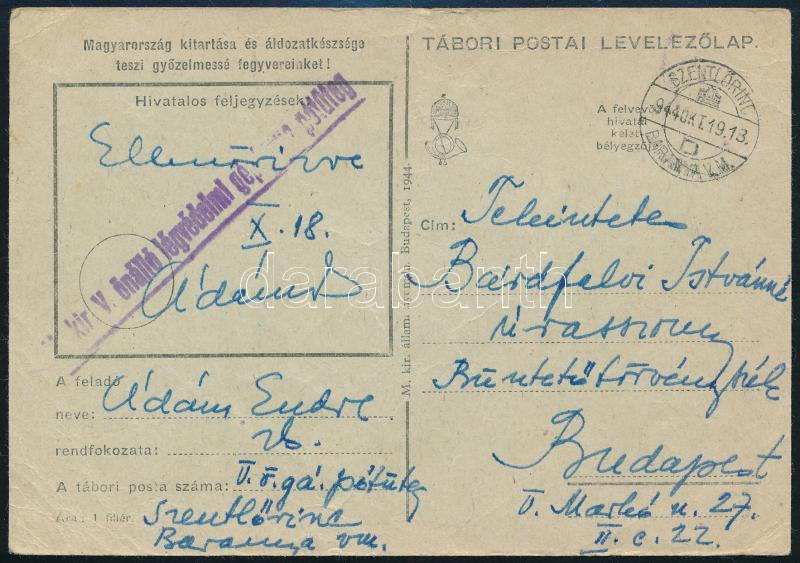 Magyarország kitartása és áldozatkészsége
teszi győzelmessé fegyvereinket!
Hivatalos feljegyzések:
Ellenőrizve
X. 18.
Ádám
kir. V. önálló légvédelmi gép
A feladó
neve: Ádám Endre
rendfokozata:
A tábori posta száma: V. ö. gá. pótüteg
Ára: 1 fillér.
Szentlőrinc
Baranya vm.
M. kir. állami nyomda. Budapest, 1944.
TÁBORI POSTAI LEVELEZŐLAP.
A felvevő
hivatal
kelet-
bélyegzője
SZENTLŐRINC
944 OKT. 19. 13.
D
BARANYA V.M.
Cím: Tekintetes
Bárdfalvi Istvánné
úrasszony
Büntetőtörvényszék
Budapest
V. Markó u. 27.
II. e. 22.
darabanth